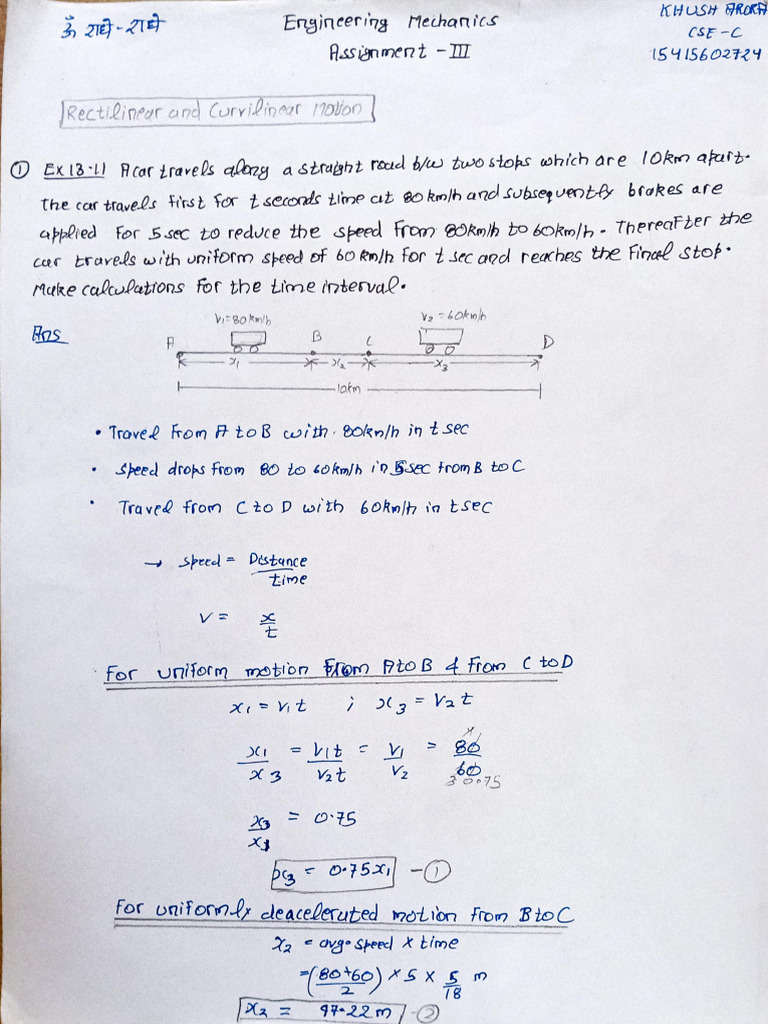 ॐ राधे-राधे
Engineering Mechanics
Assignment - III
KHUSH ARORA
CSE-C
15415602724
Rectilinear and Curvilinear Motion
① Ex 13.11 A car travels along a straight road b/w two stops which are 10km apart.
The car travels first for t seconds time at 80km/h and subsequently brakes are
applied for 5sec to reduce the speed from 80km/h to 60km/h. Thereafter the
car travels with uniform speed of 60km/h for t sec and reaches the final stop.
Make calculations for the time interval.
Ans
V₁=80km/h
V₂ = 60km/h
A
B
C
D
x₁
x₂
x₃
10km
• Travel from A to B with 80km/h in t sec
• Speed drops from 80 to 60km/h in 5sec from B to C
• Travel from C to D with 60km/h in t sec
→ speed = Distance
time
V = x
t
For uniform motion from A to B & from C to D
x₁ = V₁t ; x₃ = V₂t
x₁ = V₁t = V₁ = 80
x₃ V₂t V₂ 60
4
3 0.75
x₃ = 0.75
x₁
x₃ = 0.75x₁ - ①
For uniformly deacelerated motion from B to C
x₂ = avg. speed × time
= (80+60) × 5 × 5 m
2 18
x₂ = 97.22m - ②